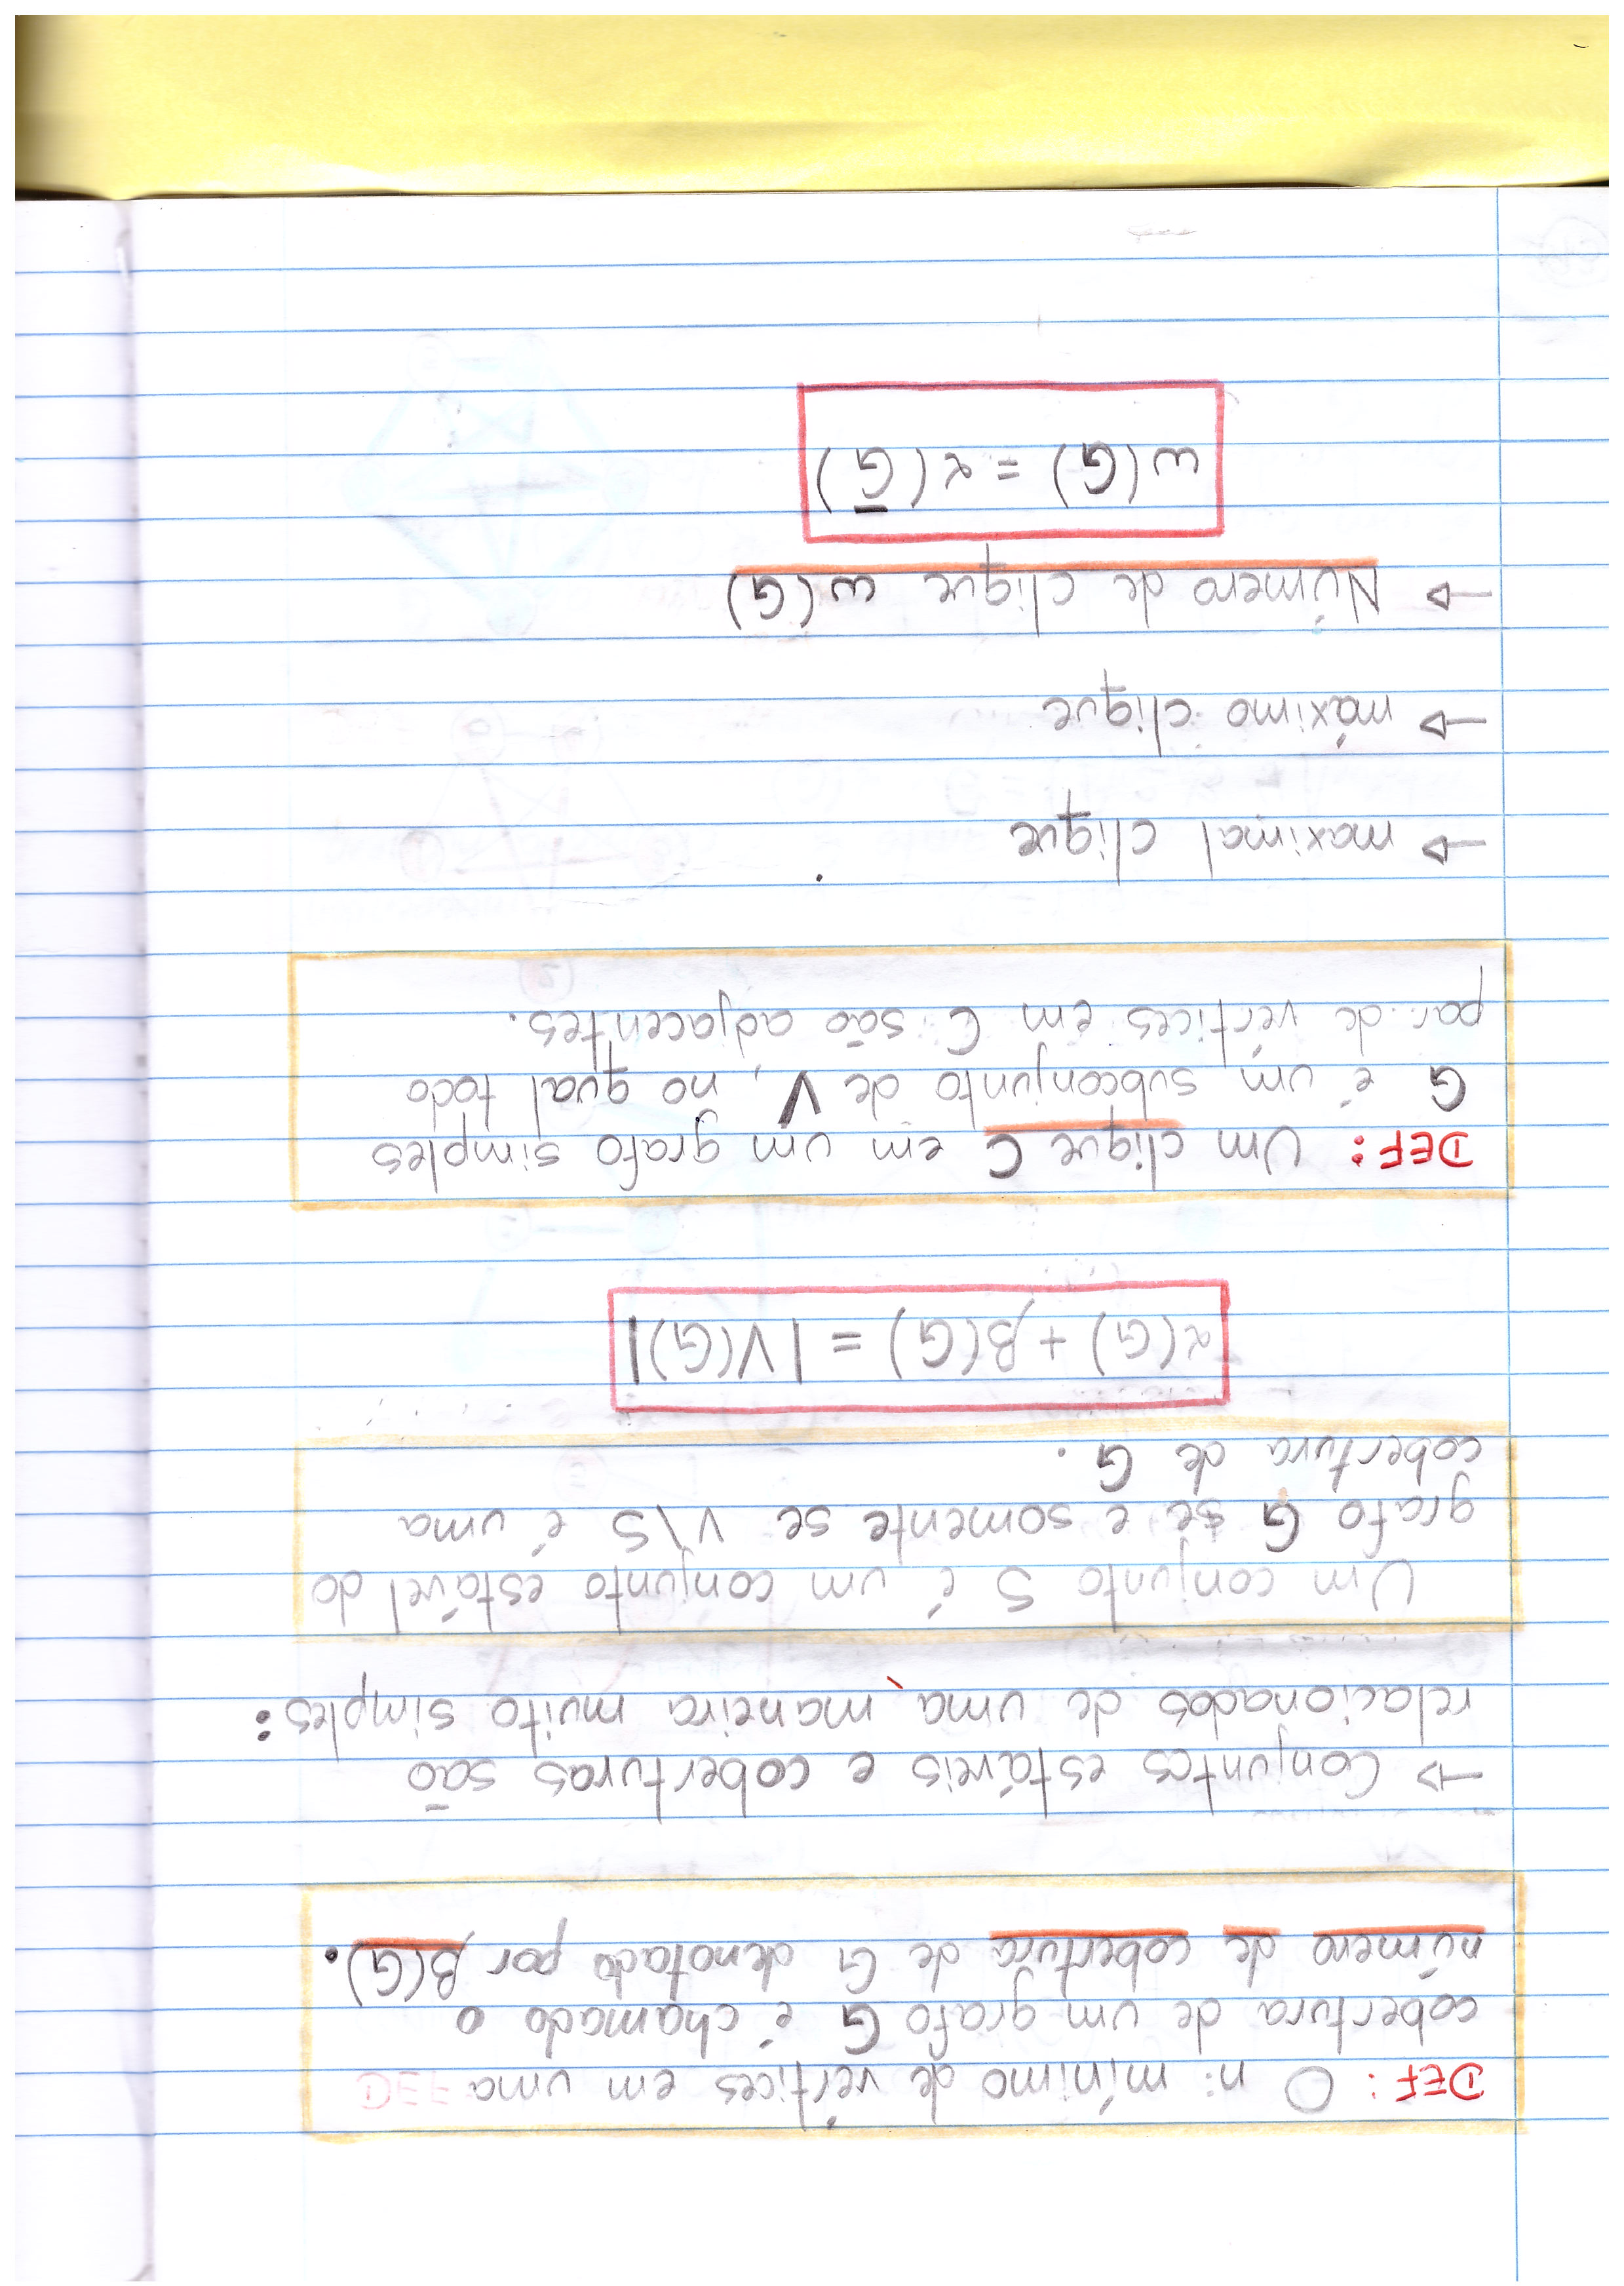 DEF: O n: mínimo de vértices em uma
cobertura de um grafo G é chamado o
número de cobertura de G denotado por β(G).
→ Conjuntos estáveis e coberturas são
relacionados de uma maneira muito simples:
Um conjunto S é um conjunto estável do
grafo G se e somente se V\S é uma
cobertura de G.
α(G) + β(G) = |V(G)|
DEF: Um clique C em um grafo simples
G é um subconjunto de V, no qual todo
par de vértices em C são adjacentes.
→ maximal clique
→ máximo clique
→ Número de clique ω(G)
ω(G) = α(Ḡ)